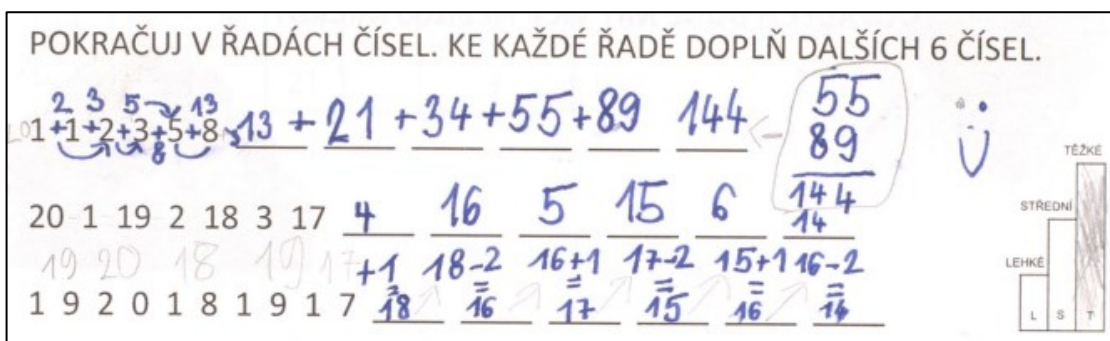 POKRAČUJ V ŘADÁCH ČÍSEL. KE KAŽDÉ ŘADĚ DOPLŇ DALŠÍCH 6 ČÍSEL.
2 3 5 13
1 + 1 + 2 + 3 + 5 + 8 13 + 21 + 34 + 55 + 89 144
8
55
89
144
20 1 19 2 18 3 17 4 16 5 15 6 14
19 20 18 19 17
+1 18-2 16+1 17-2 15+1 16-2
= = = = = =
1 9 2 0 1 8 1 9 1 7 18 16 17 15 16 14
TĚŽKÉ
STŘEDNÍ
LEHKÉ
L S T